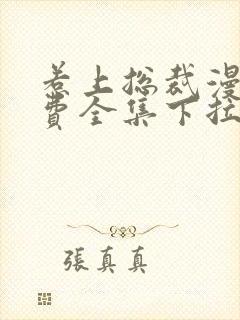 惹上总裁漫
费全集下拉
張真真